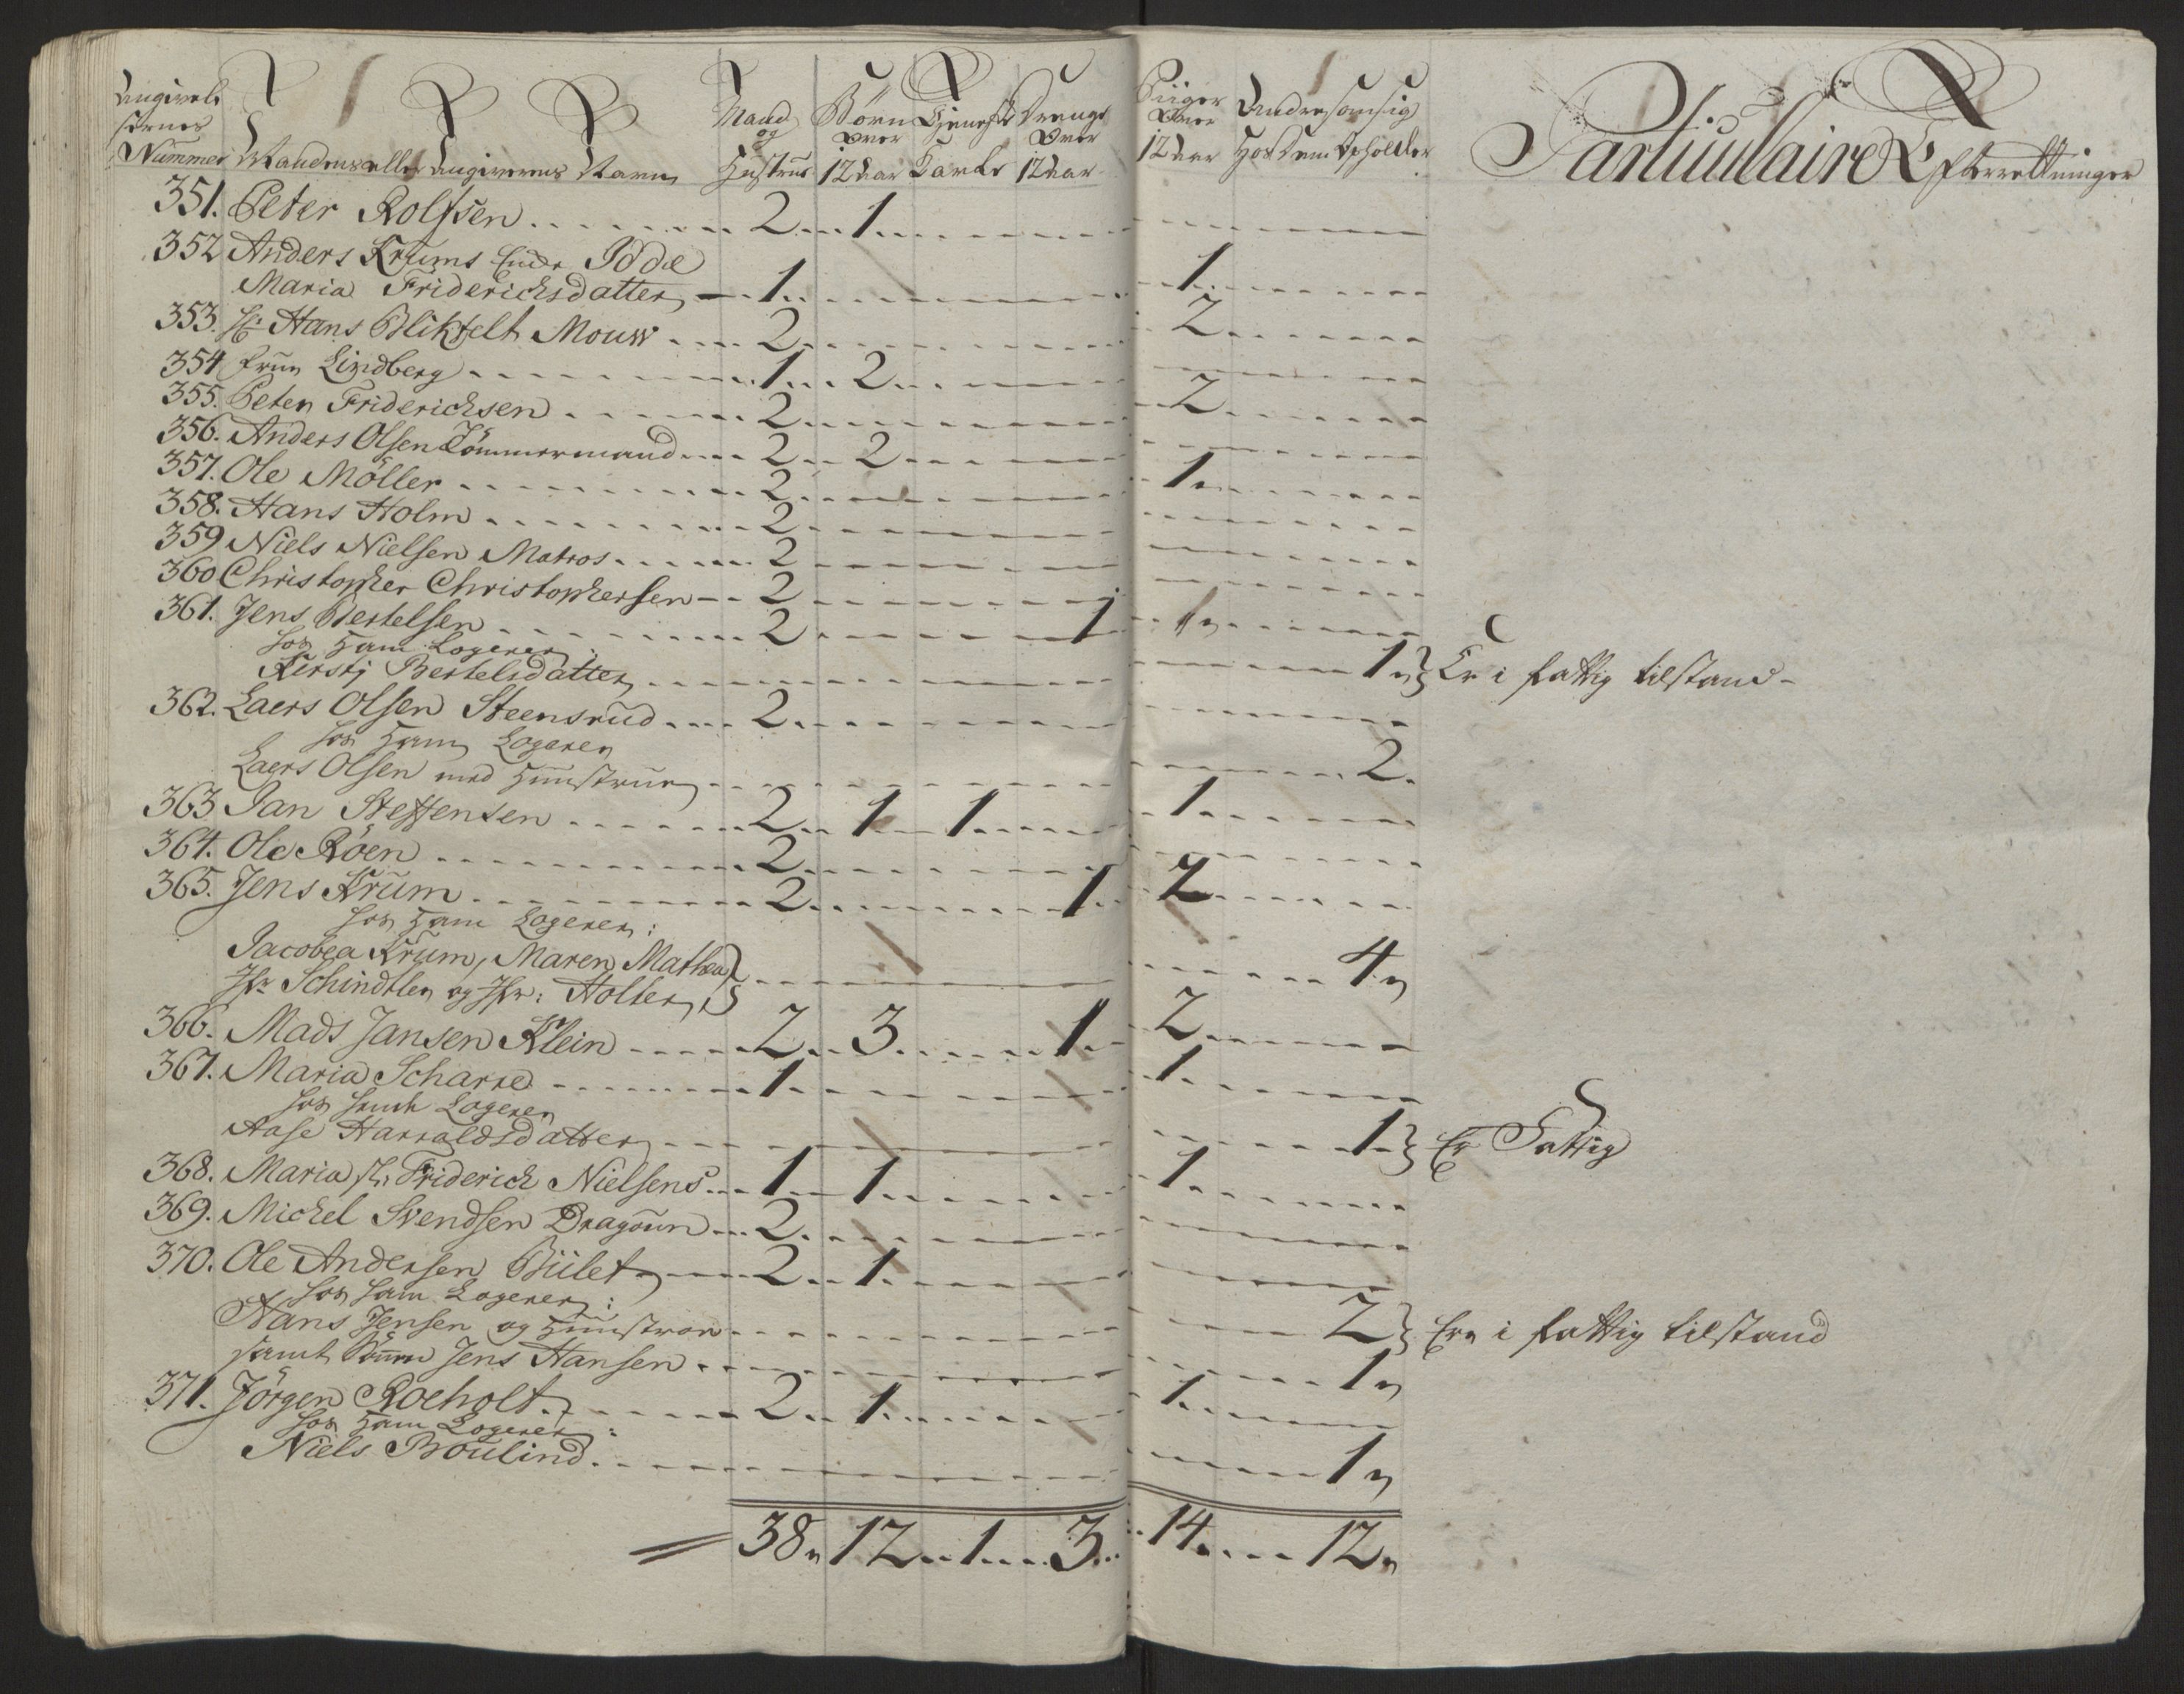 Angivel-
sernes
Nummer Mandens eller Angiverens Navn Mand og Hustrue Børn over 12 Aar Tieneste Karle Drenge Over 12 Aar Piiger Over 12 Aar Andre som sig hos dem opholder Particulaire Efterretninger
351. Peter Rolfsen 2 1
352 Anders Krums Encke Idde
Maria Friderichsdatter 1 1
353. Hr: Hans Blikfelt Mouw 2 2
354 frue Lindberg 1 2
355. Peter Friderichsen 2 2
356. Anders Olsen Tömmermand 2 2
357. Ole Möller 2 1
358. Hans Holm 2
359 Niels Nielsen Matros 2
360 Christopher Christophersen 2
361. Jens Bertelsen 2 1 1
hos ham Logerer:
Kersti Bertelsdatter 1 Er i fattig tilstand
362. Laers Olsen Steensrud 2
hos ham Logerer
Laers Olsen med Huustrue 2
363 Jan Steffensen 2 1 1 1
364. Ole Röen 2
365. Jens Krum 2 1 2
hos ham Logerer:
Jacobea Krum, Maren Mathea
Jfr Schindtler og Jfr: Holter 4
366. Mads Jansen Klein 2 3 1 2
367. Maria Scharre 1 1
hos hende Logerer
Aase Harraldsdatter 1 Er Fattig
368. Maria Sl: Friderich Nielsens 1 1 1
369. Michel Svendsen Dragoun 2
370. Ole Andersen Büilet 2 1
hos ham Logerer:
Hans Jensen og Huustroe 2 Ere i fattig tilstand
samt Sönnen Jens Hansen 1
371. Jörgen Rocholt 2 1 1
hos Ham Logerer:
Niels Boulind 1
38 12 1 3 14 12